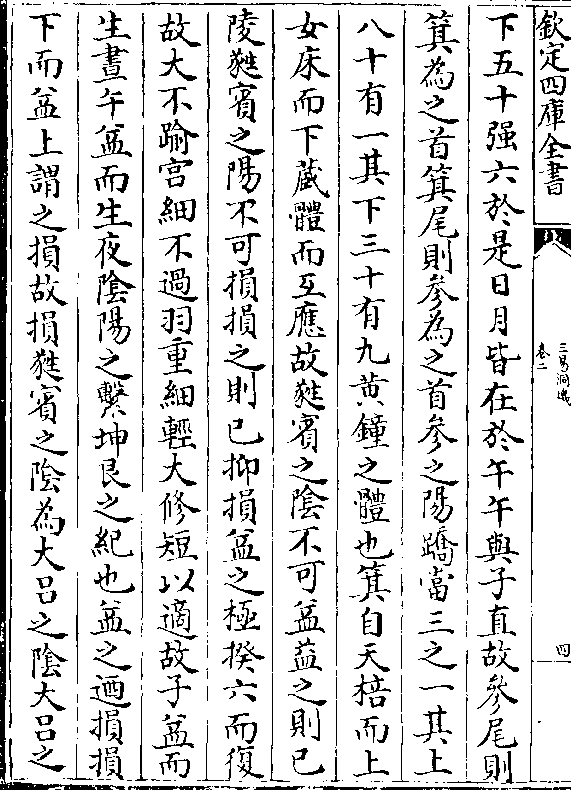 欽定四庫全書
三易洞璣
卷二
四
下五十强六於是日月皆在於午午與子直故參尾則
箕為之首箕尾則參為之首參之陽蹻當三之一其上
八十有一其下三十有九黄鐘之體也箕自天棓而上
女床而下蔵體而互應故蕤賓之陰不可益益之則已
陵蕤賓之陽不可損損之則已抑損益之極揆六而復
故大不踰宫細不過羽重細輕大修短以適故子益而
生晝午益而生夜陰陽之繫坤艮之紀也益之迺損損
下而益上謂之損故損蕤賓之陰為大吕之陰大吕之